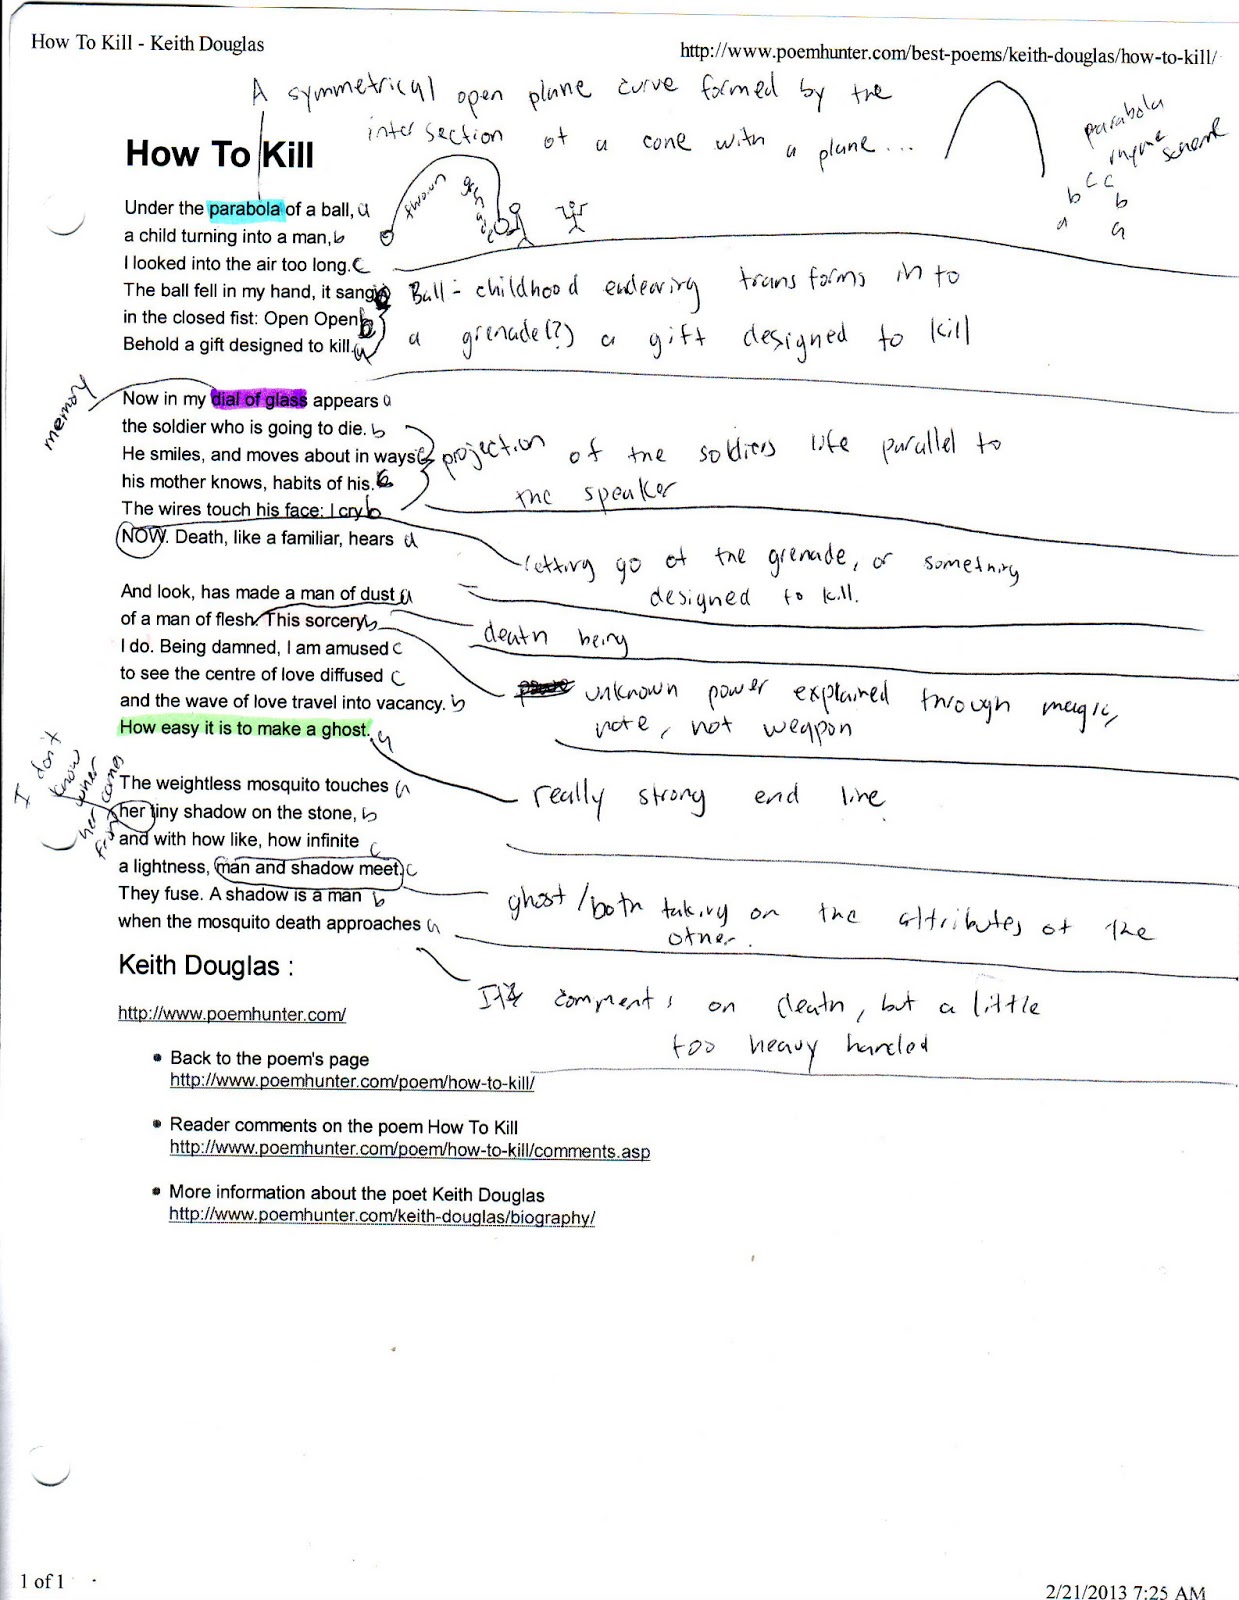 How To Kill - Keith Douglas
http://www.poemhunter.com/best-poems/keith-douglas/how-to-kill/
A symmetrical open plane curve formed by the
intersection of a cone with a plane...
parabola
rhyme
scheme
a b c c b a
How To Kill
thrown
grenade
Under the parabola of a ball, a
a child turning into a man, b
I looked into the air too long. c
The ball fell in my hand, it sang c
in the closed fist: Open Open b
Behold a gift designed to kill. a
Ball - childhood endearing transforms in to
a grenade(?) a gift designed to kill
memory
Now in my dial of glass appears a
the soldier who is going to die. b
He smiles, and moves about in ways c
his mother knows, habits of his. c
The wires touch his face: I cry b
NOW. Death, like a familiar, hears a
projection of the soldiers life parallel to
the speaker
letting go of the grenade, or something
designed to kill.
And look, has made a man of dust a
of a man of flesh. This sorcery b
I do. Being damned, I am amused c
to see the centre of love diffused c
and the wave of love travel into vacancy. b
How easy it is to make a ghost. a
death being
unknown power explained through magic,
note, not weapon
really strong end line
I don't
know wher
her comes
from
The weightless mosquito touches a
her tiny shadow on the stone, b
and with how like, how infinite c
a lightness, man and shadow meet. c
They fuse. A shadow is a man b
when the mosquito death approaches a
ghost/both taking on the attributes of the
other.
comments on death, but a little
too heavy handed
Keith Douglas :
http://www.poemhunter.com/
• Back to the poem's page
http://www.poemhunter.com/poem/how-to-kill/
• Reader comments on the poem How To Kill
http://www.poemhunter.com/poem/how-to-kill/comments.asp
• More information about the poet Keith Douglas
http://www.poemhunter.com/keith-douglas/biography/
1 of 1
2/21/2013 7:25 AM